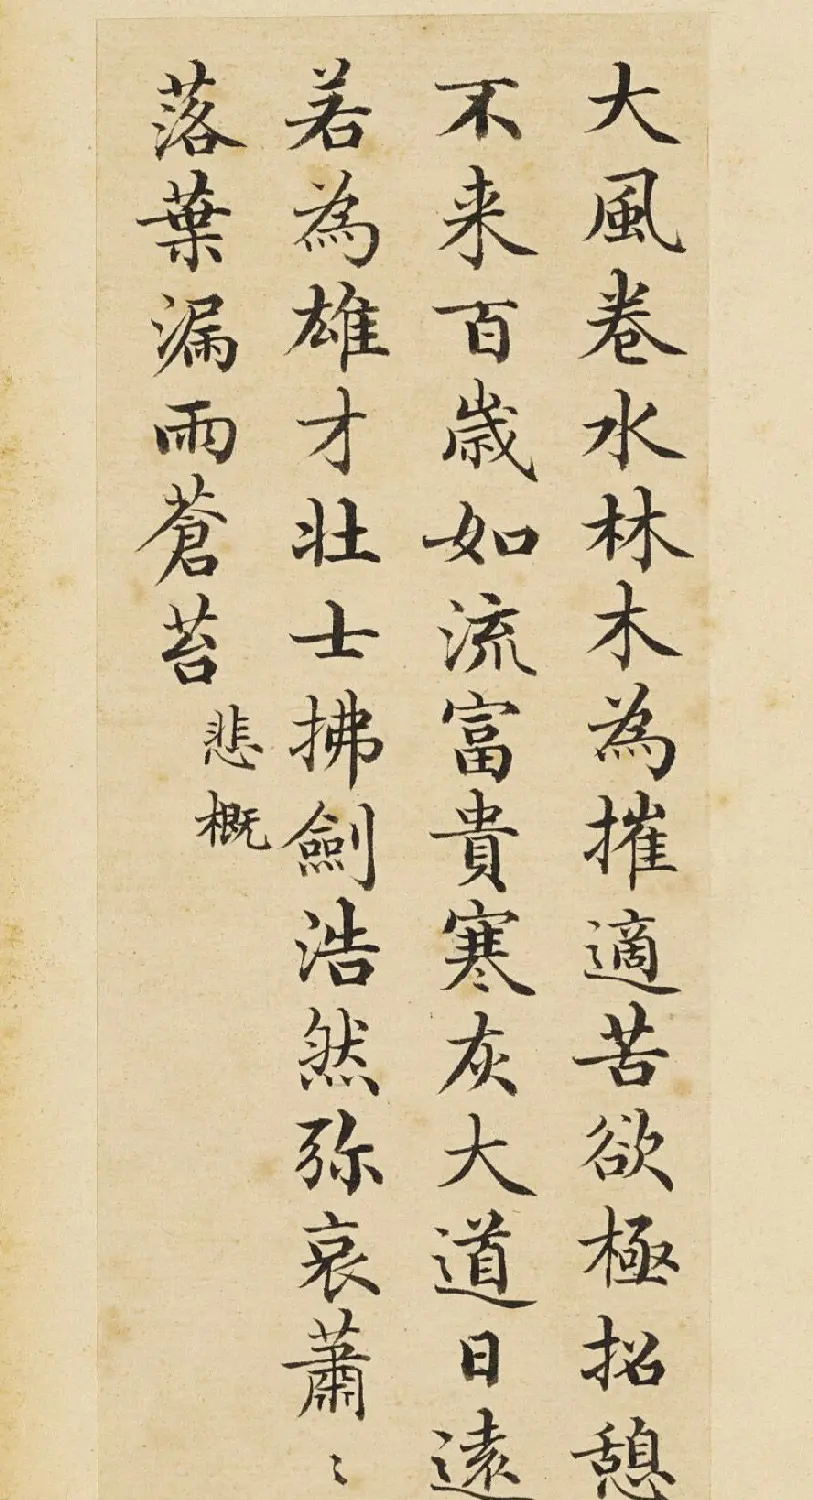 大風卷水林木為摧適苦欲極招憩
不来百歳如流富貴寒灰大道日遠
若為雄才壮士拂劍浩然弥哀蕭〻
落葉漏雨蒼苔
悲概